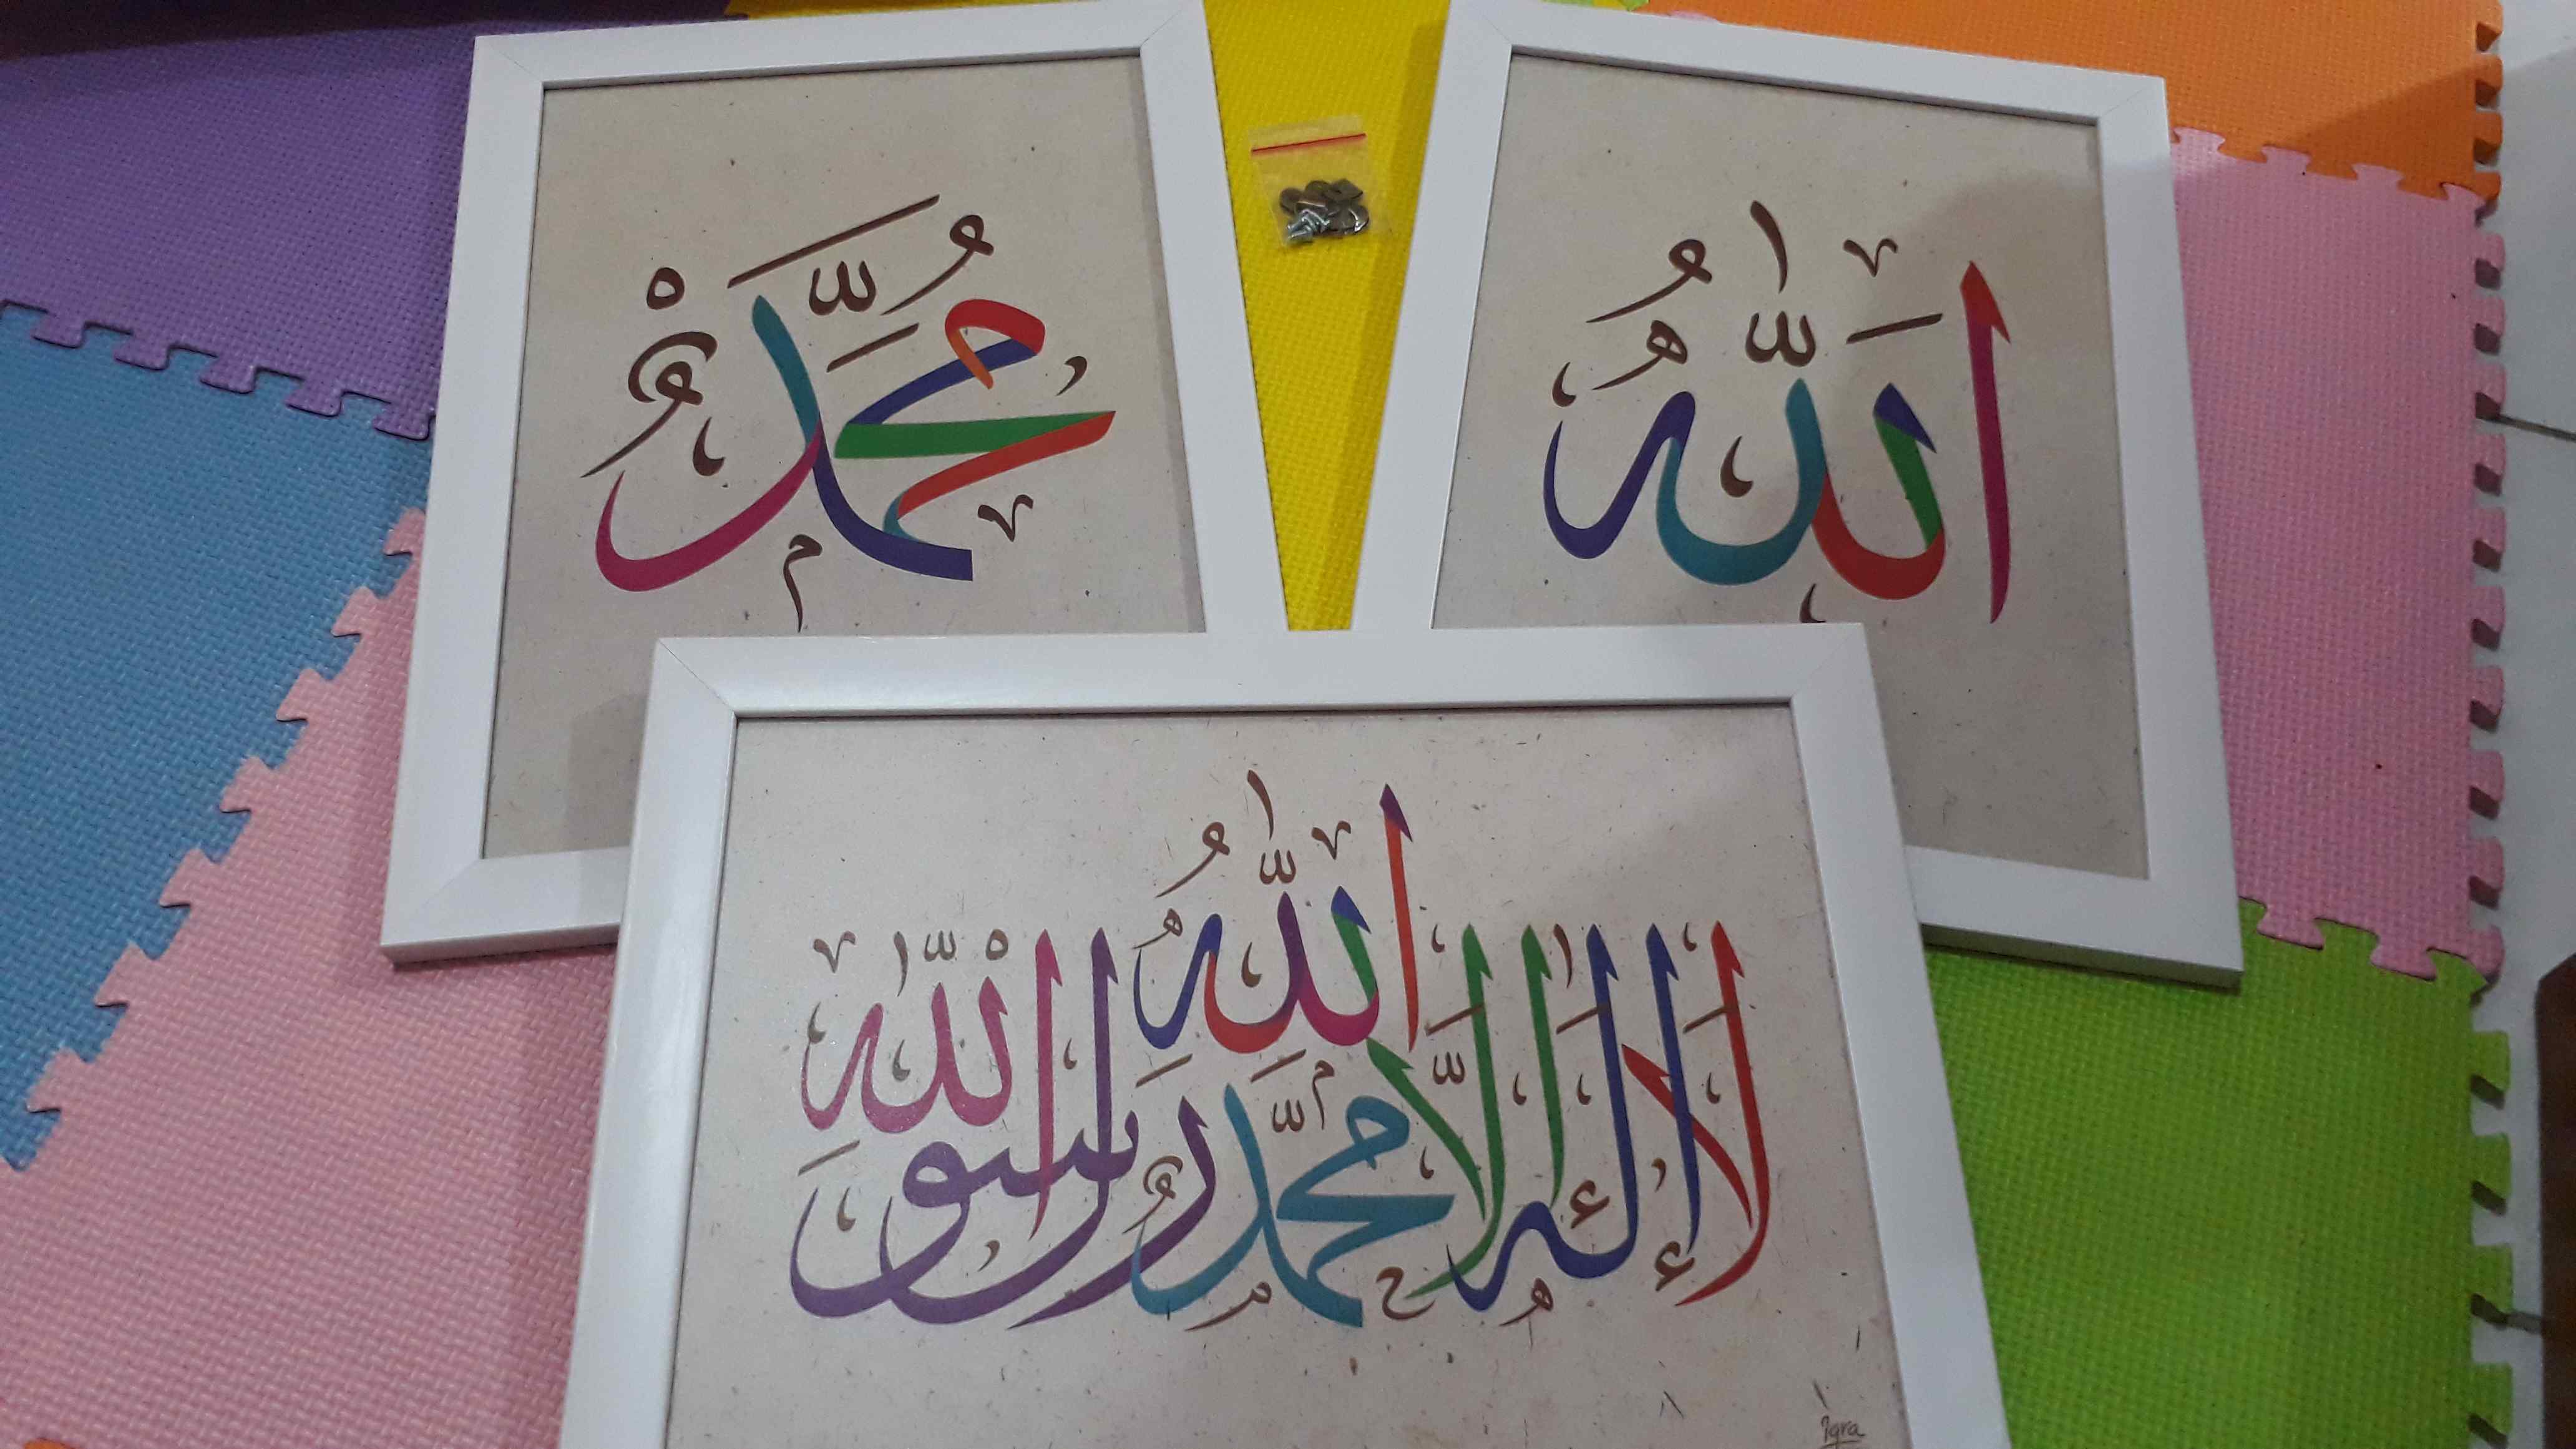 مُحَمَّدٌ
اَللّٰهُ
لَا إِلٰهَ إِلَّا اللّٰهُ مُحَمَّدٌ رَسُولُ اللّٰهِ
Iqra